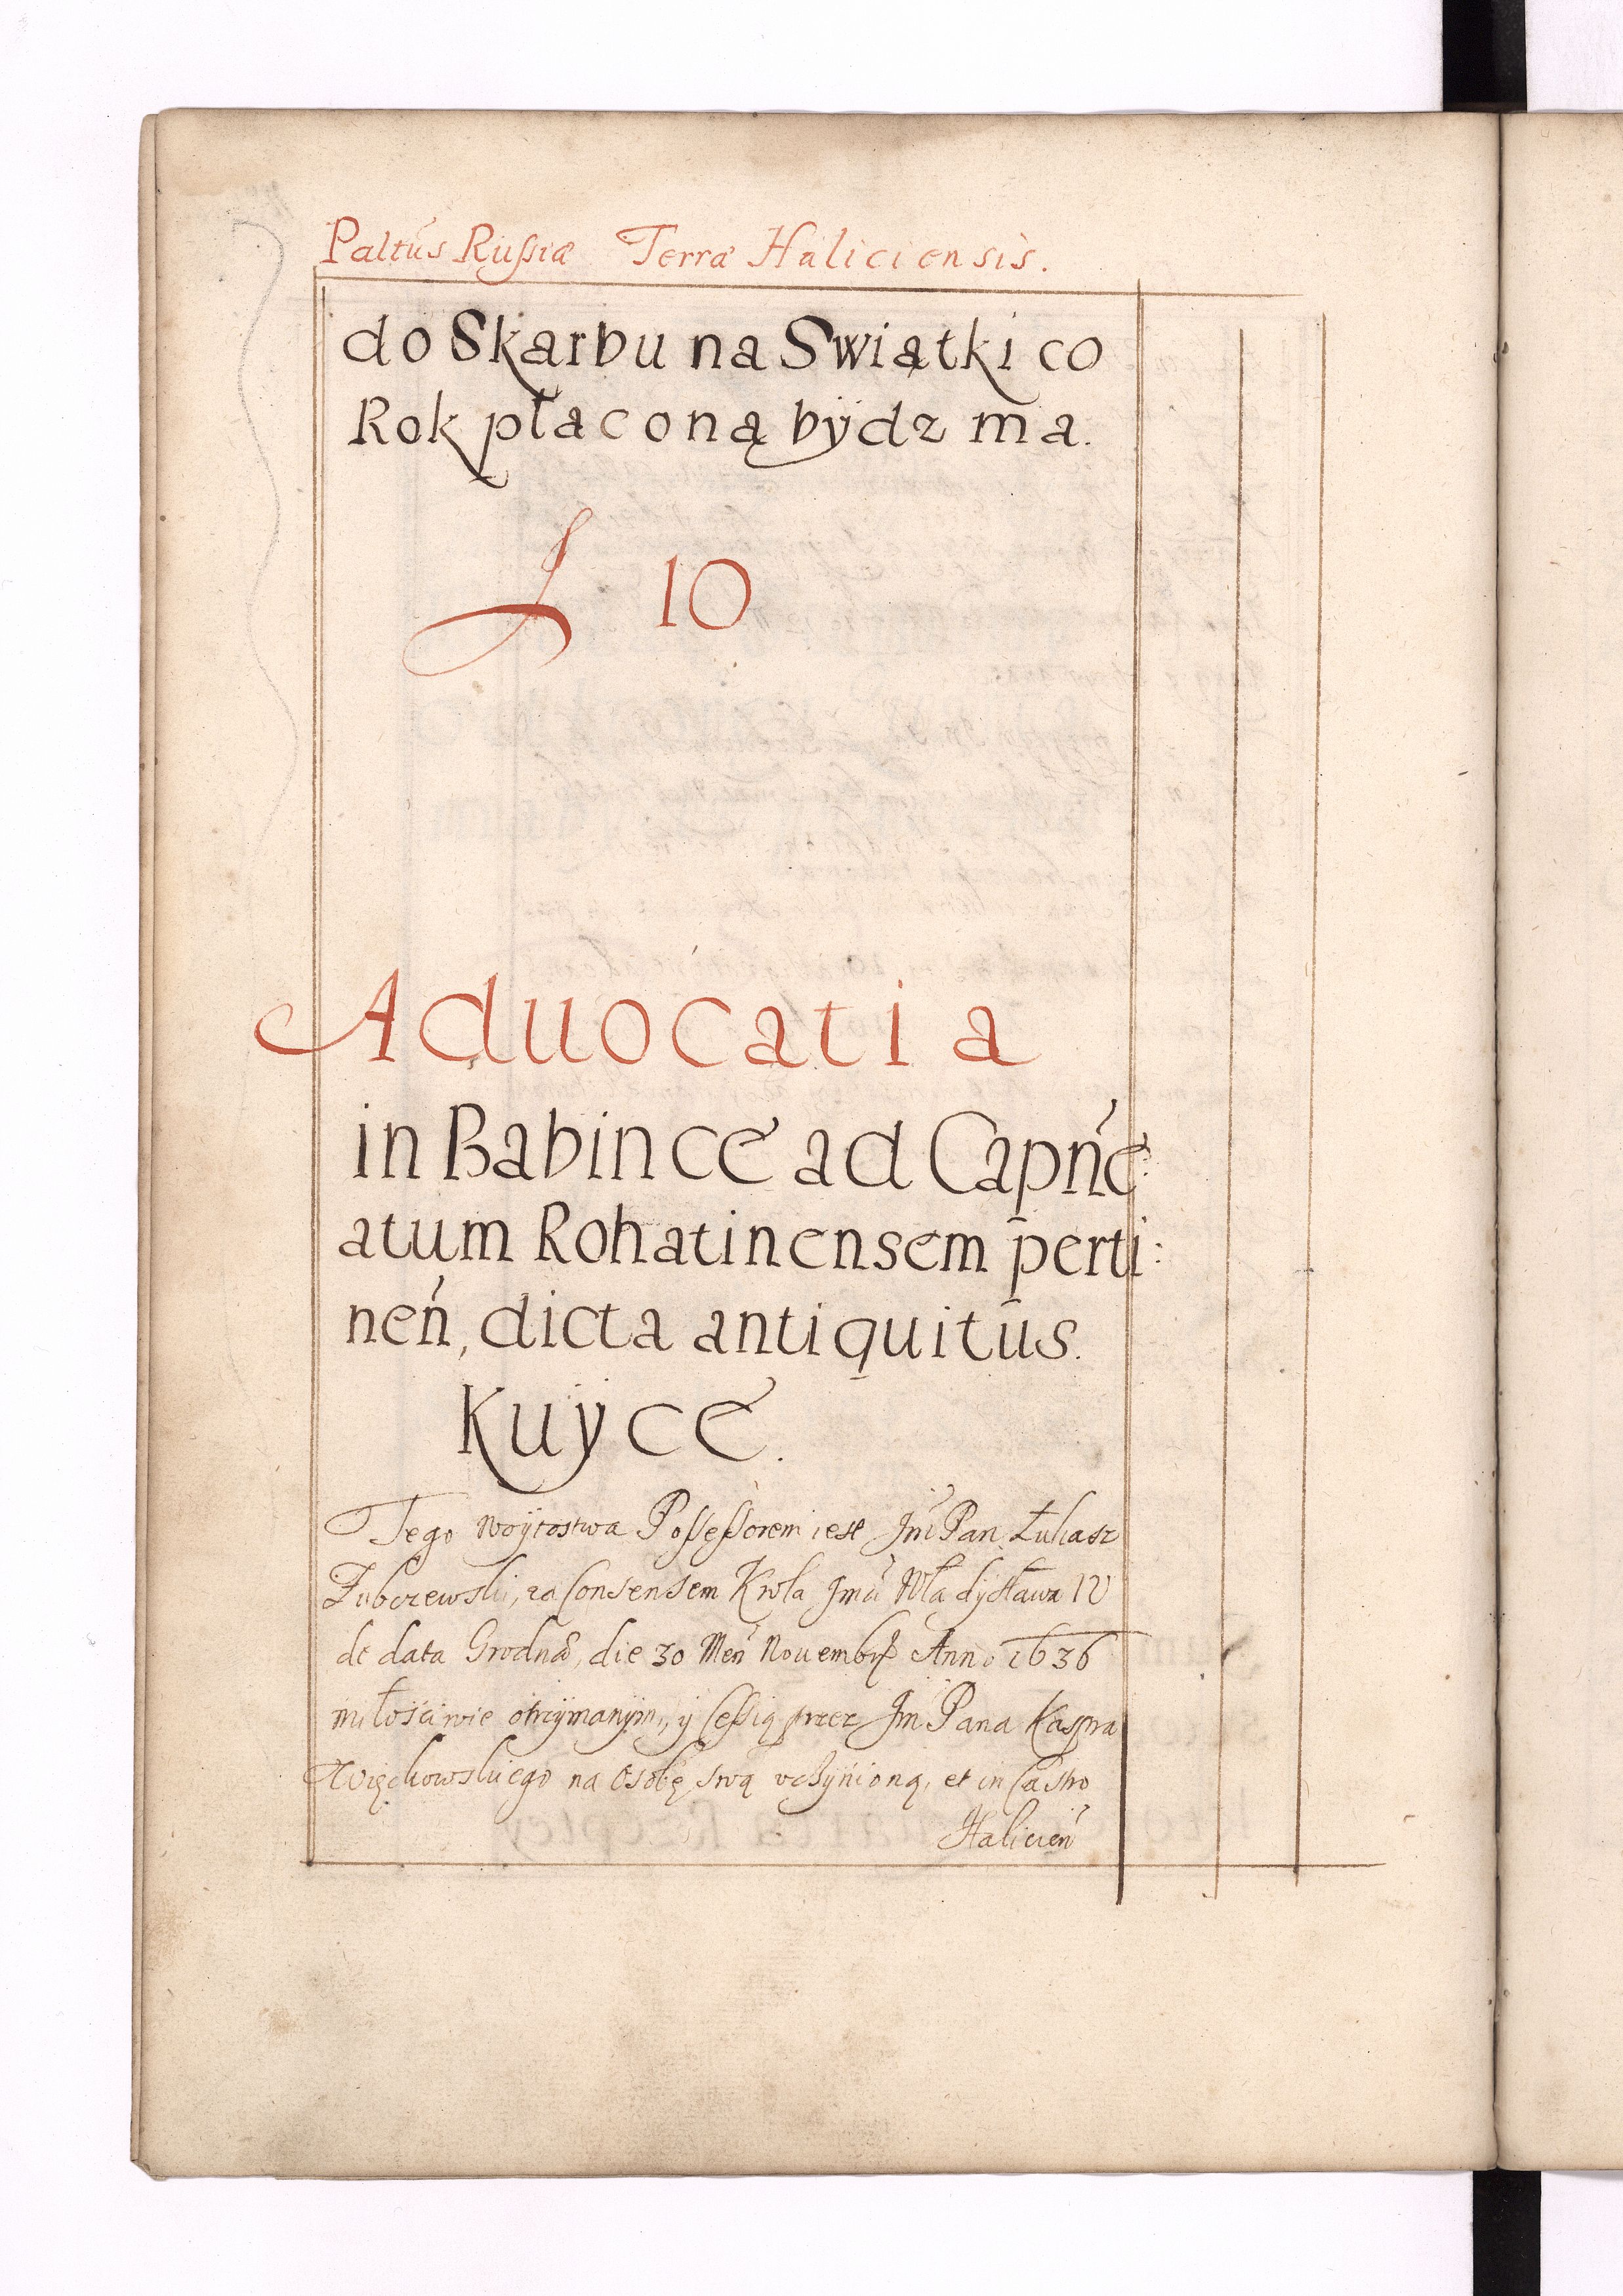 Paltus Russiæ Terræ Haliciensis.
do Skarbu na Swiątki co
Rok płaconą bÿdz ma.
10
Aduocatia
in Babince ad Capńe
atum Rohatinensem perti:
neń, dicta antiquitus.
Kuÿce.
Tego woÿtostwa Possessorem iest Jm̃ Pan Łukasz
Zubczewski, za Consensem Krola Jmći Władÿsława IV
de data Grodnæ, die 30 Meń Nouembris Anno 1636
miłosciwie otrzÿmanÿm, ÿ Cessią przez Jm̃ Pana Kaspra
Więckowskiego na Osobę swą vczÿnioną, et in Castro
Halicień